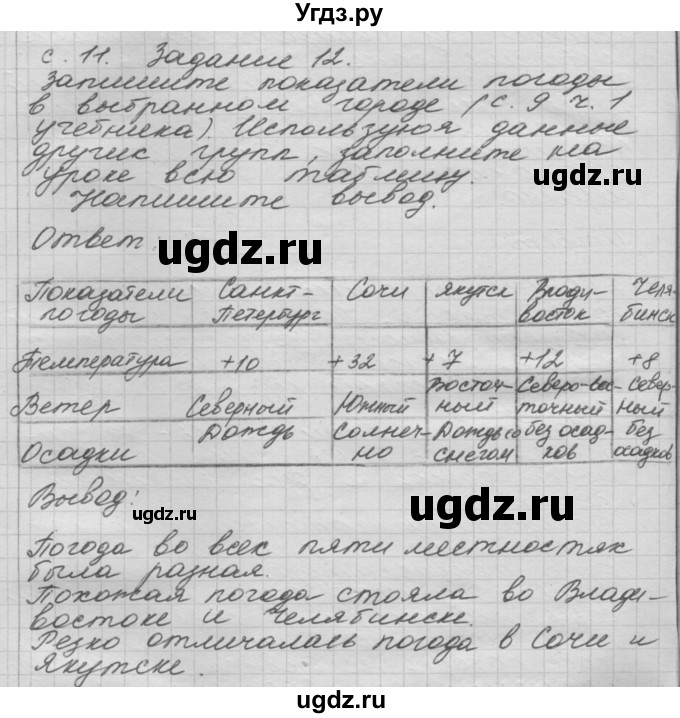 Угдз.ру
с. 11. Задание 12.
Запишите показатели погоды
в выбранном городе (с. 9 ч. 1
учебника). Используюя данные
других групп, заполните на
уроке всю таблицу.
Напишите вывод.
ugdz.ru
Ответ:
ugdz.ru
Показатели погоды Санкт-Петербург Сочи Якутск Влади-восток Челя-бинск
Температура +10 +32 +7 +12 +8
Ветер Северный Южный Восточ-ный Северо-вос-точный Север-ный
Осадки Дождь Солнеч-но Дождь со снегом без осад-ков без осадков
Вывод:
ugdz.ru
ugdz.ru
Погода во всех пяти местностях
была разная.
Похожая погода стояла во Влади-
востоке и Челябинске.
Резко отличалась погода в Сочи и
Якутске.
ugdz.ru